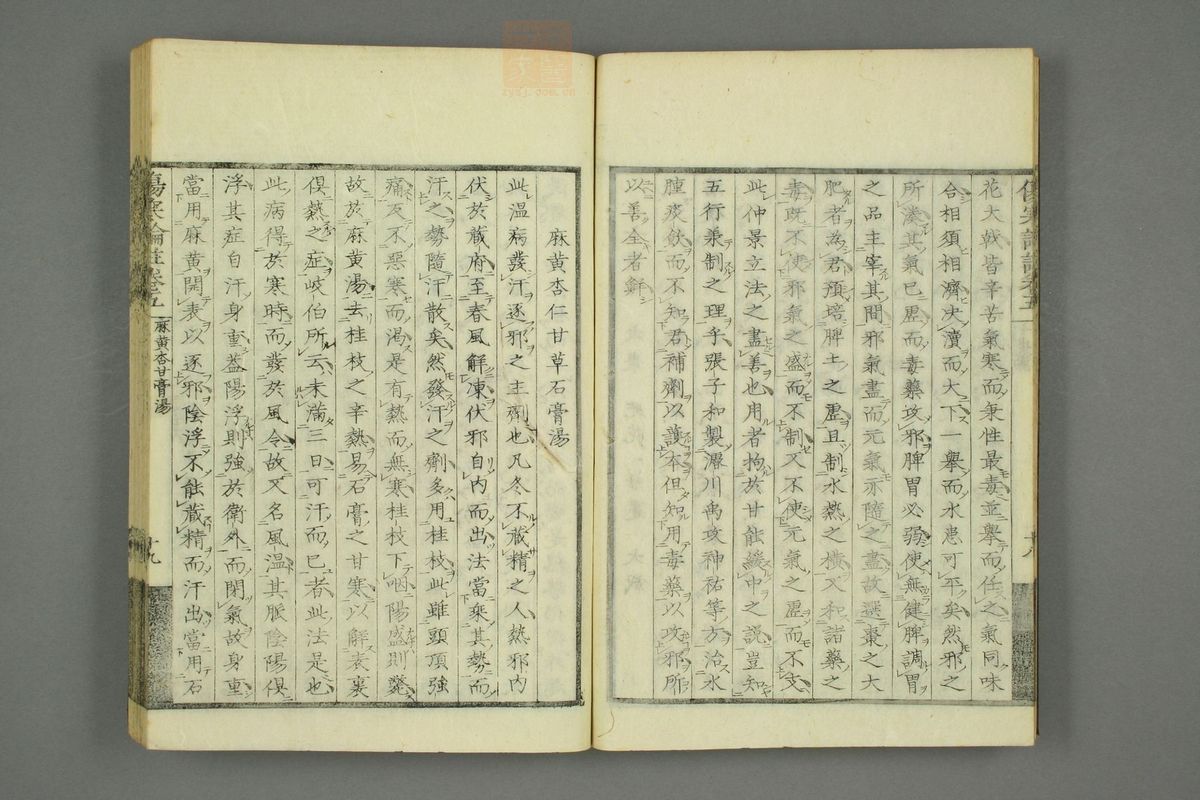 花大戟皆辛苦氣寒而秉性最毒並舉而任之氣同味
合相須相濟決瀆而大下一舉而水患可平矣然邪之
所湊其氣已虛而毒藥攻邪脾胃必弱使無健脾調胃
之品主宰其間邪氣盡而元氣亦隨之盡故選棗之大
肥者為君預培脾土之虛且制水熱之橫又和諸藥之
毒既不使邪氣之盛而不制又不使元氣之虛而不支
此仲景立法之盡善也用者拘於甘能緩中之說豈知
五行承制之理乎張子和製濬川禹攻神祐等方治水
腫痰飲而不知君補劑以護本但知用毒藥以攻邪所
以善全者鮮
麻黃杏仁甘草石膏湯
此溫病發汗逐邪之主劑也凡冬不藏精之人熱邪內
伏於藏府至春風解凍伏邪自內而出法當乘其勢而
汗之勢隨汗散矣然發汗之劑多用桂枝此雖頭頂強
痛反不惡寒而渴是有熱而無寒桂枝下咽陽盛則斃
故於麻黃湯去桂枝之辛熱易石膏之甘寒以解表裏
俱熱之症岐伯所云未滿三日可汗而已者此法是也
此病得於寒時而發於風令故又名風溫其脈陰陽俱
浮其症自汗身重蓋陽浮則強於衛外而閉氣故身重
當用麻黃開表以逐邪陰浮不能藏精而汗出當用石
傷寒論註卷五
麻黃杏甘膏湯
十九
zysj.com.cn